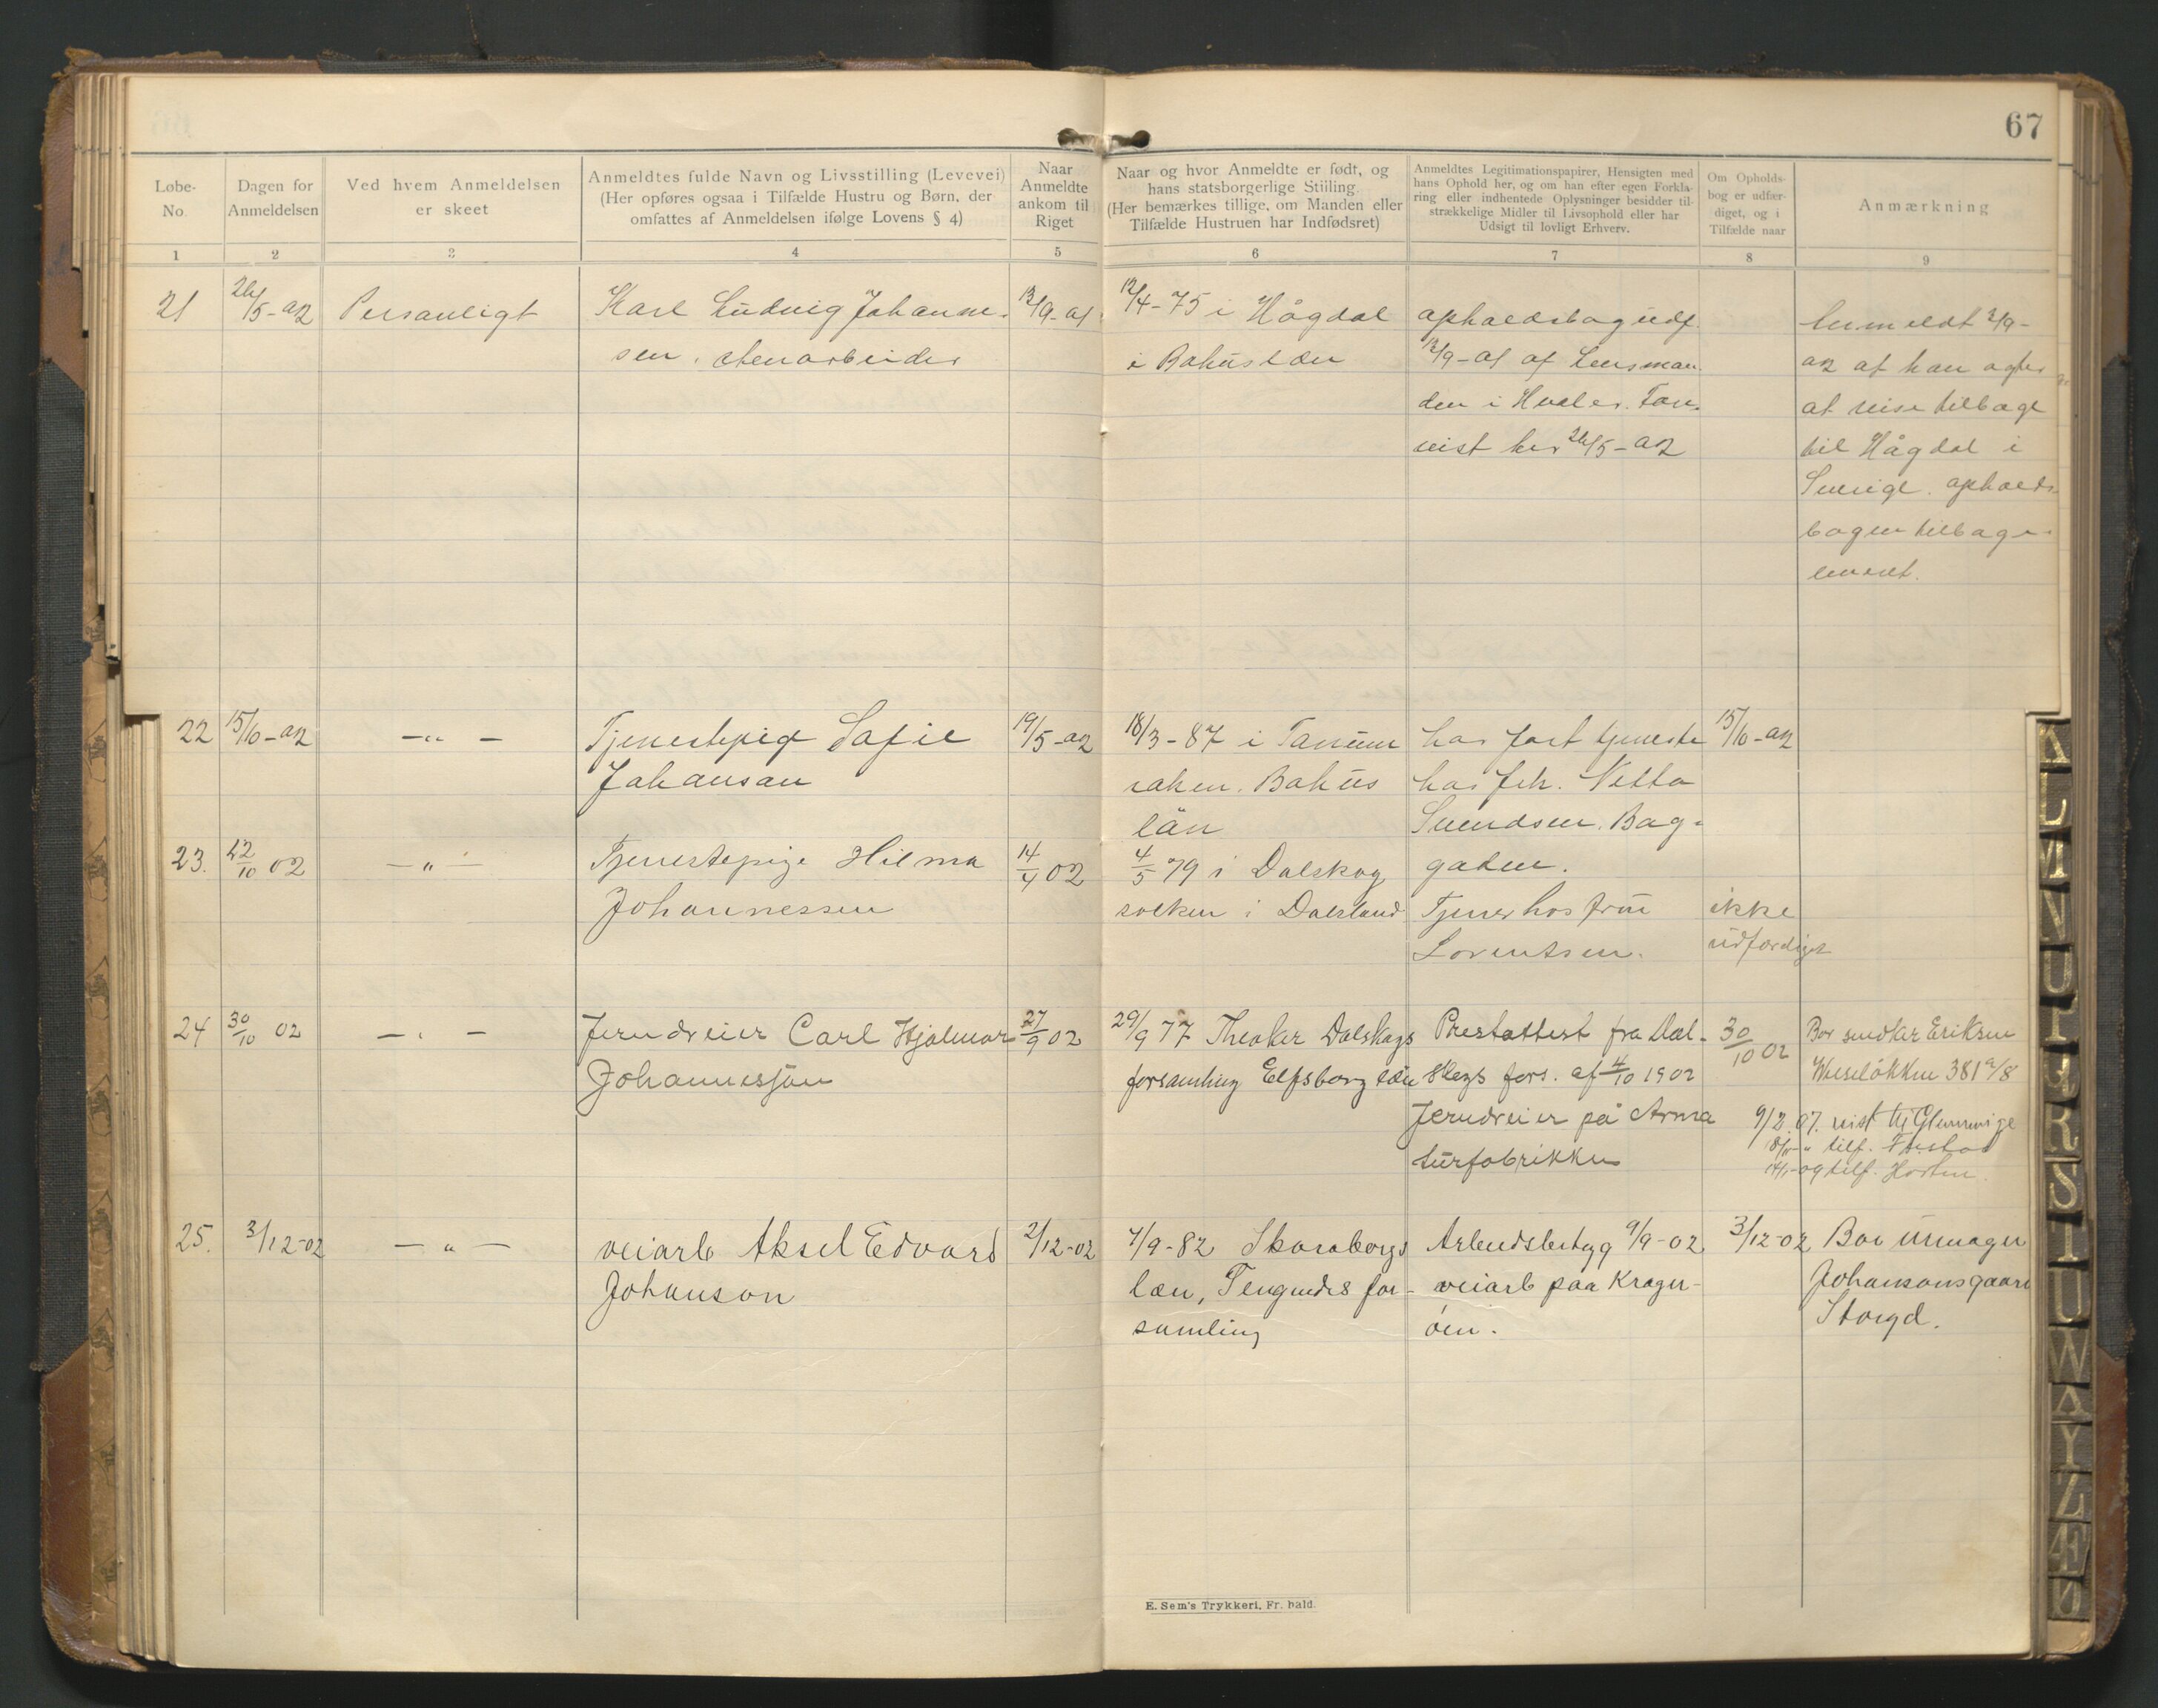 67
Løbe-
No.
Dagen for
Anmeldelsen
Ved hvem Anmeldelsen
er skeet
Anmeldtes fulde Navn og Livsstilling (Levevei)
(Her opføres ogsaa i Tilfælde Hustru og Børn, der
omfattes af Anmeldelsen ifølge Lovens § 4)
Naar
Anmeldte
ankom til
Riget
Naar og hvor Anmeldte er født, og
hans statsborgerlige Stiiling.
(Her bemærkes tillige, om Manden eller
Tilfælde Hustruen har Indfødsret)
Anmeldtes Legitimationspapirer, Hensigten med
hans Ophold her, og om han efter egen Forkla-
ring eller indhentede Oplysninger besidder til-
strækkelige Midler til Livsophold eller har
Udsigt til lovligt Erhverv.
Om Opholds-
bog er udfær-
diget, og i
Tilfælde naar
Anmærkning
1 2 3 4 5 6 7 8 9
21
26/5-02
Personligt
Karl Ludvig Johanne-
sen. Stenarbeider
12/9-01
12/4-75 i Hågdal
i Bohuslæn
opholdsbog udf.
12/9-01 af Lensman
den i Hvaler. For-
vist her 26/5-02
02 at han agter
at reise tilbage
til Hågdal i
Sverige. opholds
bogen tilbage-
leveret.
22
15/10-02
-„-
Tjenestepige Sofie
Johanson
19/5-02
18/3-87 i Tanum
soken. Bohus
län
har fast tjeneste
hos frk. Netta
Svendsen. Bag-
gaden.
15/10-02
23.
22/10 02
-„-
Tjenestepige Hilma
Johannessen
14/4 02
4/5 79 i Dalskog
socken i Dalsland
Tjener hos fru
Lorentsen.
ikke
udfærdiget
24
30/10 02
-„-
Jerndreier Carl Hjalmar
Johannesson
27/9 02
29/9 77 Dalskogs
forsamling Elfsborg læn
Prestattest fra Dal-
skogs fors. af 4/10 1902
Jerndreier på Arma
turfabrikken
30/10 02
Bor snedker Eriksen
381 a/8
9/2.07. reist til Glemminge
tilf. Fr.stad
og tilf. Horten.
25.
3/12-02
-„-
veiarb Aksel Edvard
Johanson
2/12-02
7/9-82 Skaraborgs
læn, Tengendes for-
samling
Arbeidsbetyg 9/9-02
veiarb paa Krager-
öen.
3/12-02
Bor urmager
Johansonsgaard
Storgd.
E. Sem's Trykkeri, Fr. hald.
L
M
N
R
S
T
U
W
Y
Z
Æ
Ø